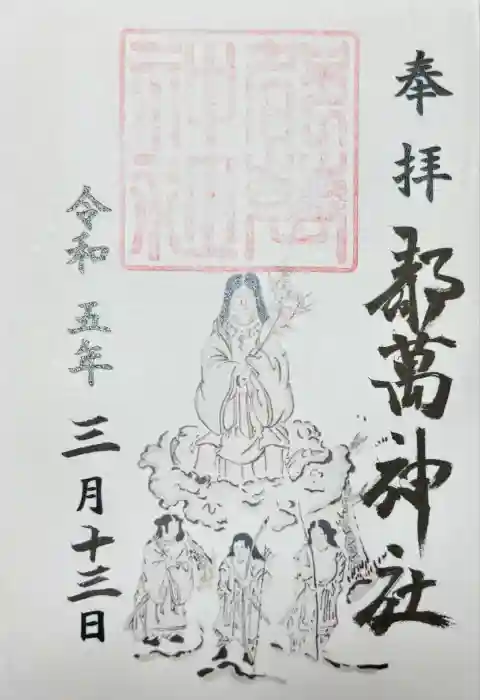 奉拝
都萬神社
令和五年三月十三日